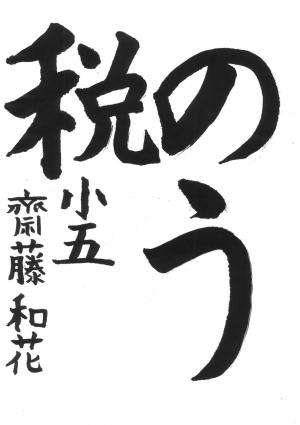 のう
税
小五
齋藤和花